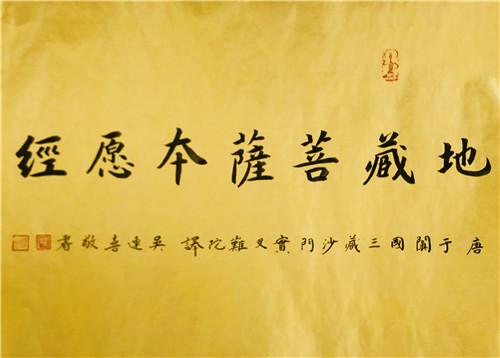 地藏菩薩本愿經
唐于闐國三藏沙門實叉難陀譯 吴連喜敬書